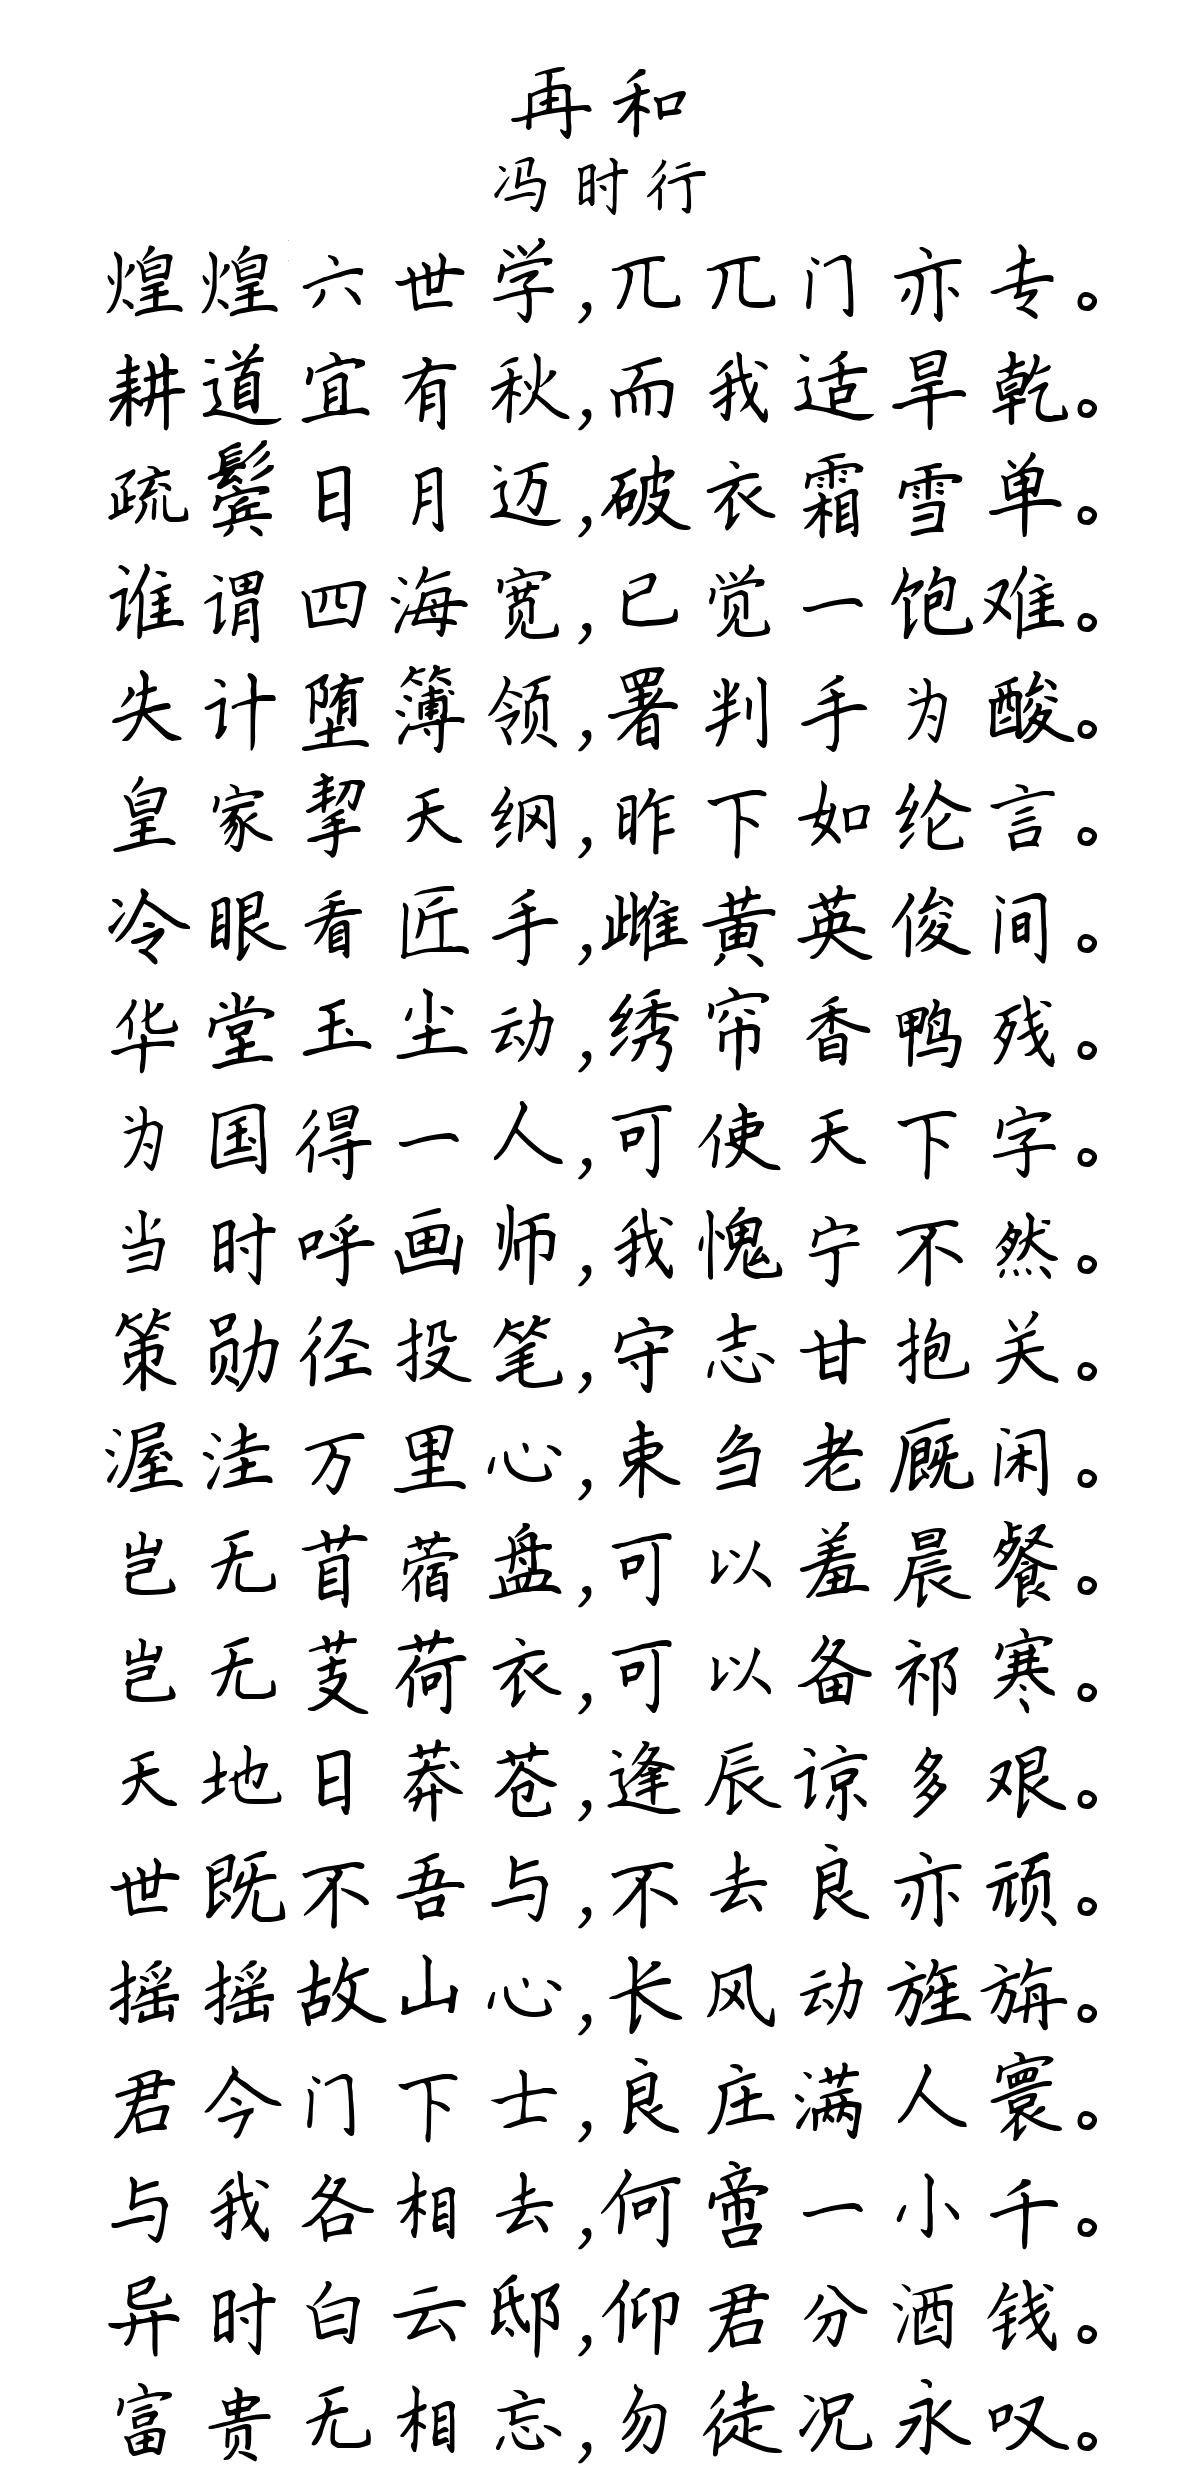 再和
冯时行
煌煌六世学,兀兀门亦专。
耕道宜有秋,而我适旱乾。
疏鬓日月迈,破衣霜雪单。
谁谓四海宽,已觉一饱难。
失计堕簿领,署判手为酸。
皇家挈天纲,昨下如纶言。
冷眼看匠手,雌黄英俊间。
华堂玉尘动,绣帘香鸭残。
为国得一人,可使天下字。
当时呼画师,我愧宁不然。
策勋径投笔,守志甘抱关。
渥洼万里心,束刍老厩闲。
岂无苜蓿盘,可以羞晨餐。
岂无芰荷衣,可以备祁寒。
天地日莽苍,逢辰谅多艰。
世既不吾与,不去良亦顽。
摇摇故山心,长风动旌旃。
君今门下士,良庄满人寰。
与我各相去,何啻一小千。
异时白云邸,仰君分酒钱。
富贵无相忘,勿徒况永叹。